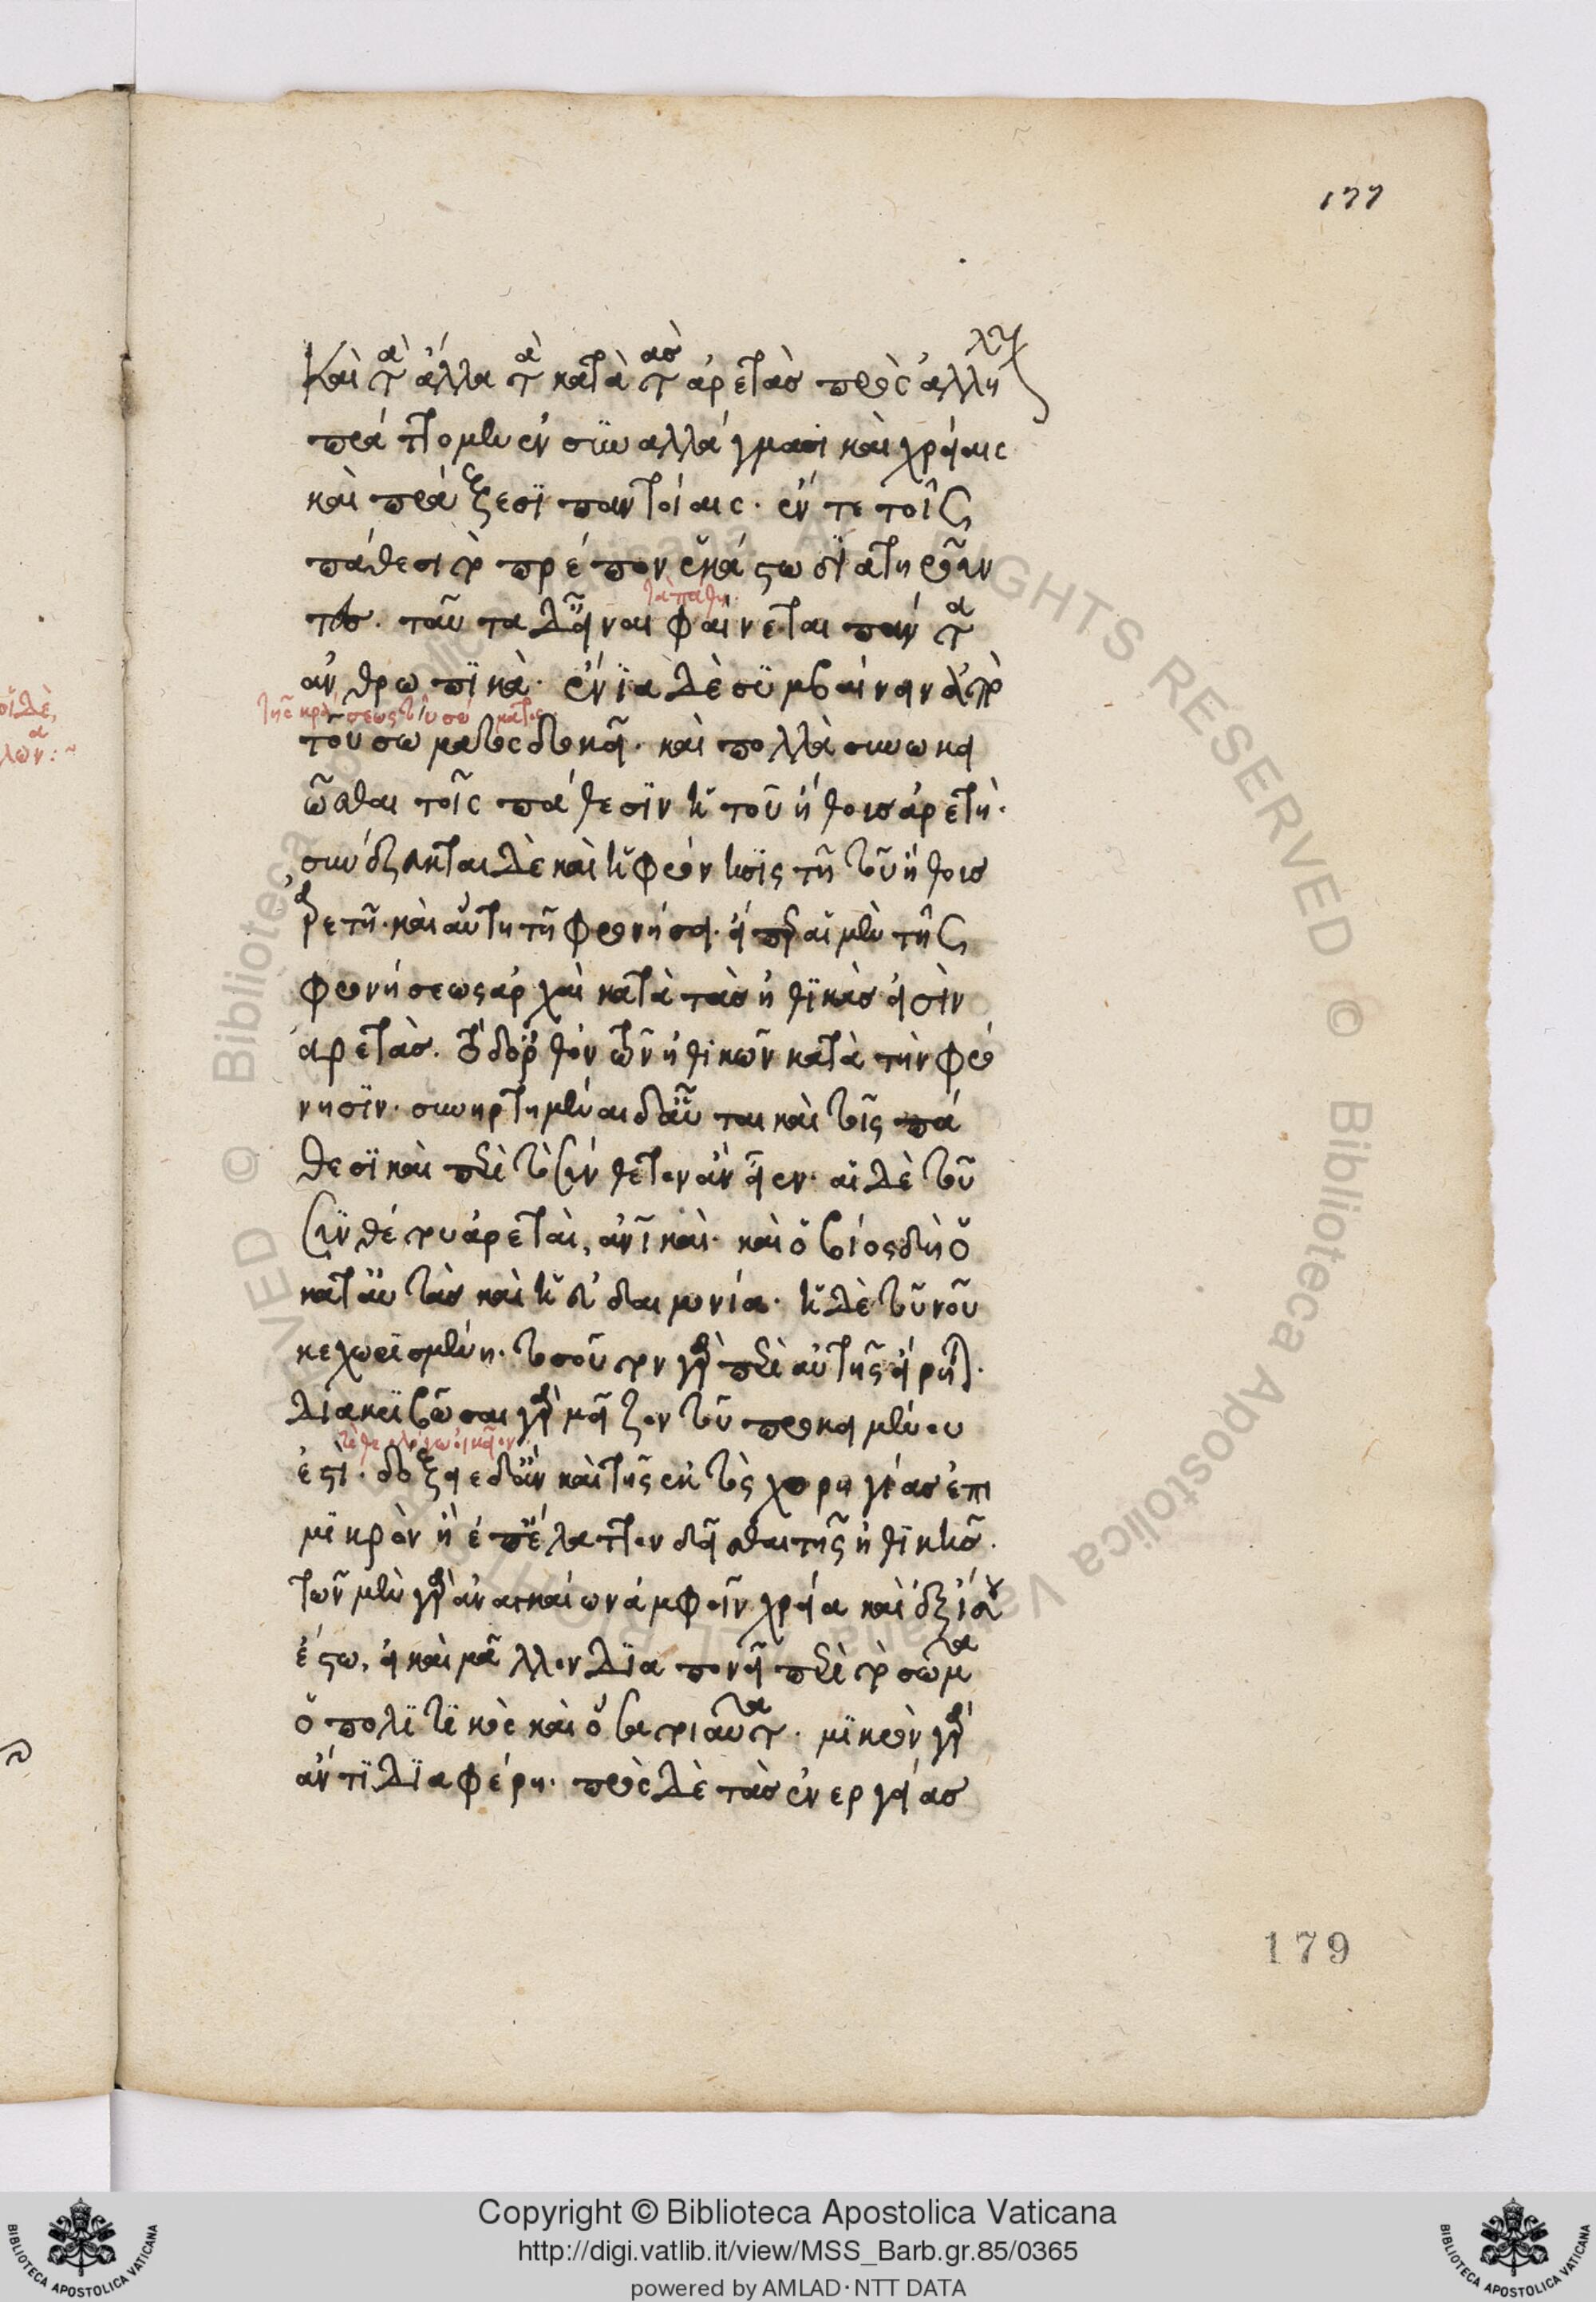 177
Καὶ τὰ ἄλλα τὰ κατὰ τὰς ἀρετὰς πρὸς ἀλλή
πράττομεν ἐν συναλλάγμασι καὶ χρείαις
καὶ πράξεσι παντοίαις. ἔν τε τοῖς
πάθεσι τὸ πρέπον ἑκάστω διατηροῦν
τες. ταῦτα δ' εἶναι φαίνεται πάντα
τὰ πάθη.
ἀνθρωπικά. ἔνια δὲ συμβαίνειν ἀπὸ
τῆς κράσεως τοῦ σώματος
τοῦ σώματος δοκεῖ. καὶ πολλὰ συνωκει
ῶσθαι τοῖς πάθεσιν ἡ τοῦ ἤθους ἀρετή.
συνέζευκται δὲ καὶ ἡ φρόνησις τῆ τοῦ ἤθους
ἀρετῆ. καὶ αὕτη τῆ φρονήσει. εἴπερ αἱ μὲν τῆς
φρονήσεως ἀρχαὶ κατὰ τὰς ἠθικάς εἰσιν
ἀρετάς. τὸ δ' ὀρθὸν τῶν ἠθικῶν κατὰ τὴν φρό
νησιν. συνηρτημέναι δ' αὗται καὶ τοῖς πά
θεσι καὶ περὶ τὸ σύνθετον ἂν εἶεν. αἱ δὲ τοῦ
συνθέτου ἀρεταὶ, ἀνικαί. καὶ ὁ βίος δὴ ὁ
κατ' αὐτὰς καὶ ἡ εὐδαιμονία. ἡ δὲ τοῦ νοῦ
κεχωρισμένη. τοσοῦτον γὰρ περὶ αὐτῆς εἰρήσθω.
διακριβῶσαι γὰρ μεῖζον τοῦ προκειμένου
ἐστί. δόξειε δ' ἂν καὶ τῆς ἐκτὸς χορηγίας ἐπι
μικρὸν ἢ ἐπ' ἔλαττον δεῖσθαι τῆς ἠθικῆς.
τῶν μὲν γὰρ ἀναγκαίων ἀμφοῖν χρεία καὶ ἐξίσου
ἔστω, εἰ καὶ μᾶλλον διαπονεῖ περὶ τὸ σῶμα
ὁ πολιτικὸς καὶ ὅσα τοιαῦτα. μικρὸν γὰρ
ἄν τι διαφέρη. πρὸς δὲ τὰς ἐνεργείας
179
Copyright © Biblioteca Apostolica Vaticana
http://digi.vatlib.it/view/MSS_Barb.gr.85/0365
powered by AMLAD·NTT DATA